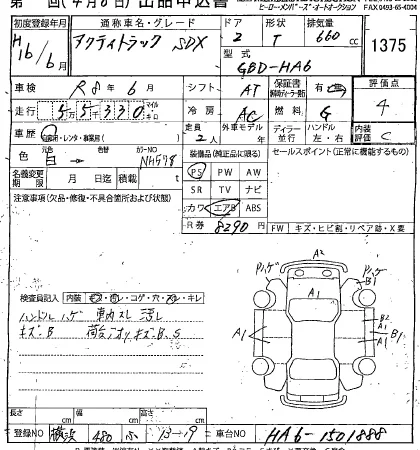 第 回(4月8日) 出品申込書
ヒーロー・メンバーズ・オートオークション FAX0493-65-4004
初度登録年月 通称車名・グレード ドア 形状 排気量
H16/6 アクティトラック SDX 2 T 660 cc 1375
型式
GBD-HA6
車検 R8年6月 シフト AT 保証書 有 評価点
4
走行 55330 マイル キロ 冷房 AC 燃料 G
車歴 自家用・レンタ・事業用( ) 定員 2人 外車モデル 年 ディーラー 並行 ハンドル 左・右 内装評価 C
色 白 → 色替 カラーNO NH578 装備品(純正品に限る) セールスポイント(正常に機能するもの)
名義変更期限 月 日迄 積載 t PS PW AW
注意事項(欠品・修復・不具合箇所および状態) SR TV ナビ
カワ エアB ABS
R券 8290円 FW キズ・ヒビ割・リペア跡・X要
A2
ハゲ ハゲ
B1
A1
検査員記入 内装 キズ・汚レ・コゲ・穴・スレ・キレ
ハンドルハゲ 車内スレ汚レ
キズ・B 荷台アオリキズ・B、S
B2
A1 A1 A1 B1
A1
長さ cm 幅 cm 高さ cm
登録NO 横浜 480 ふ 13-19 車台NO HA6-1501888